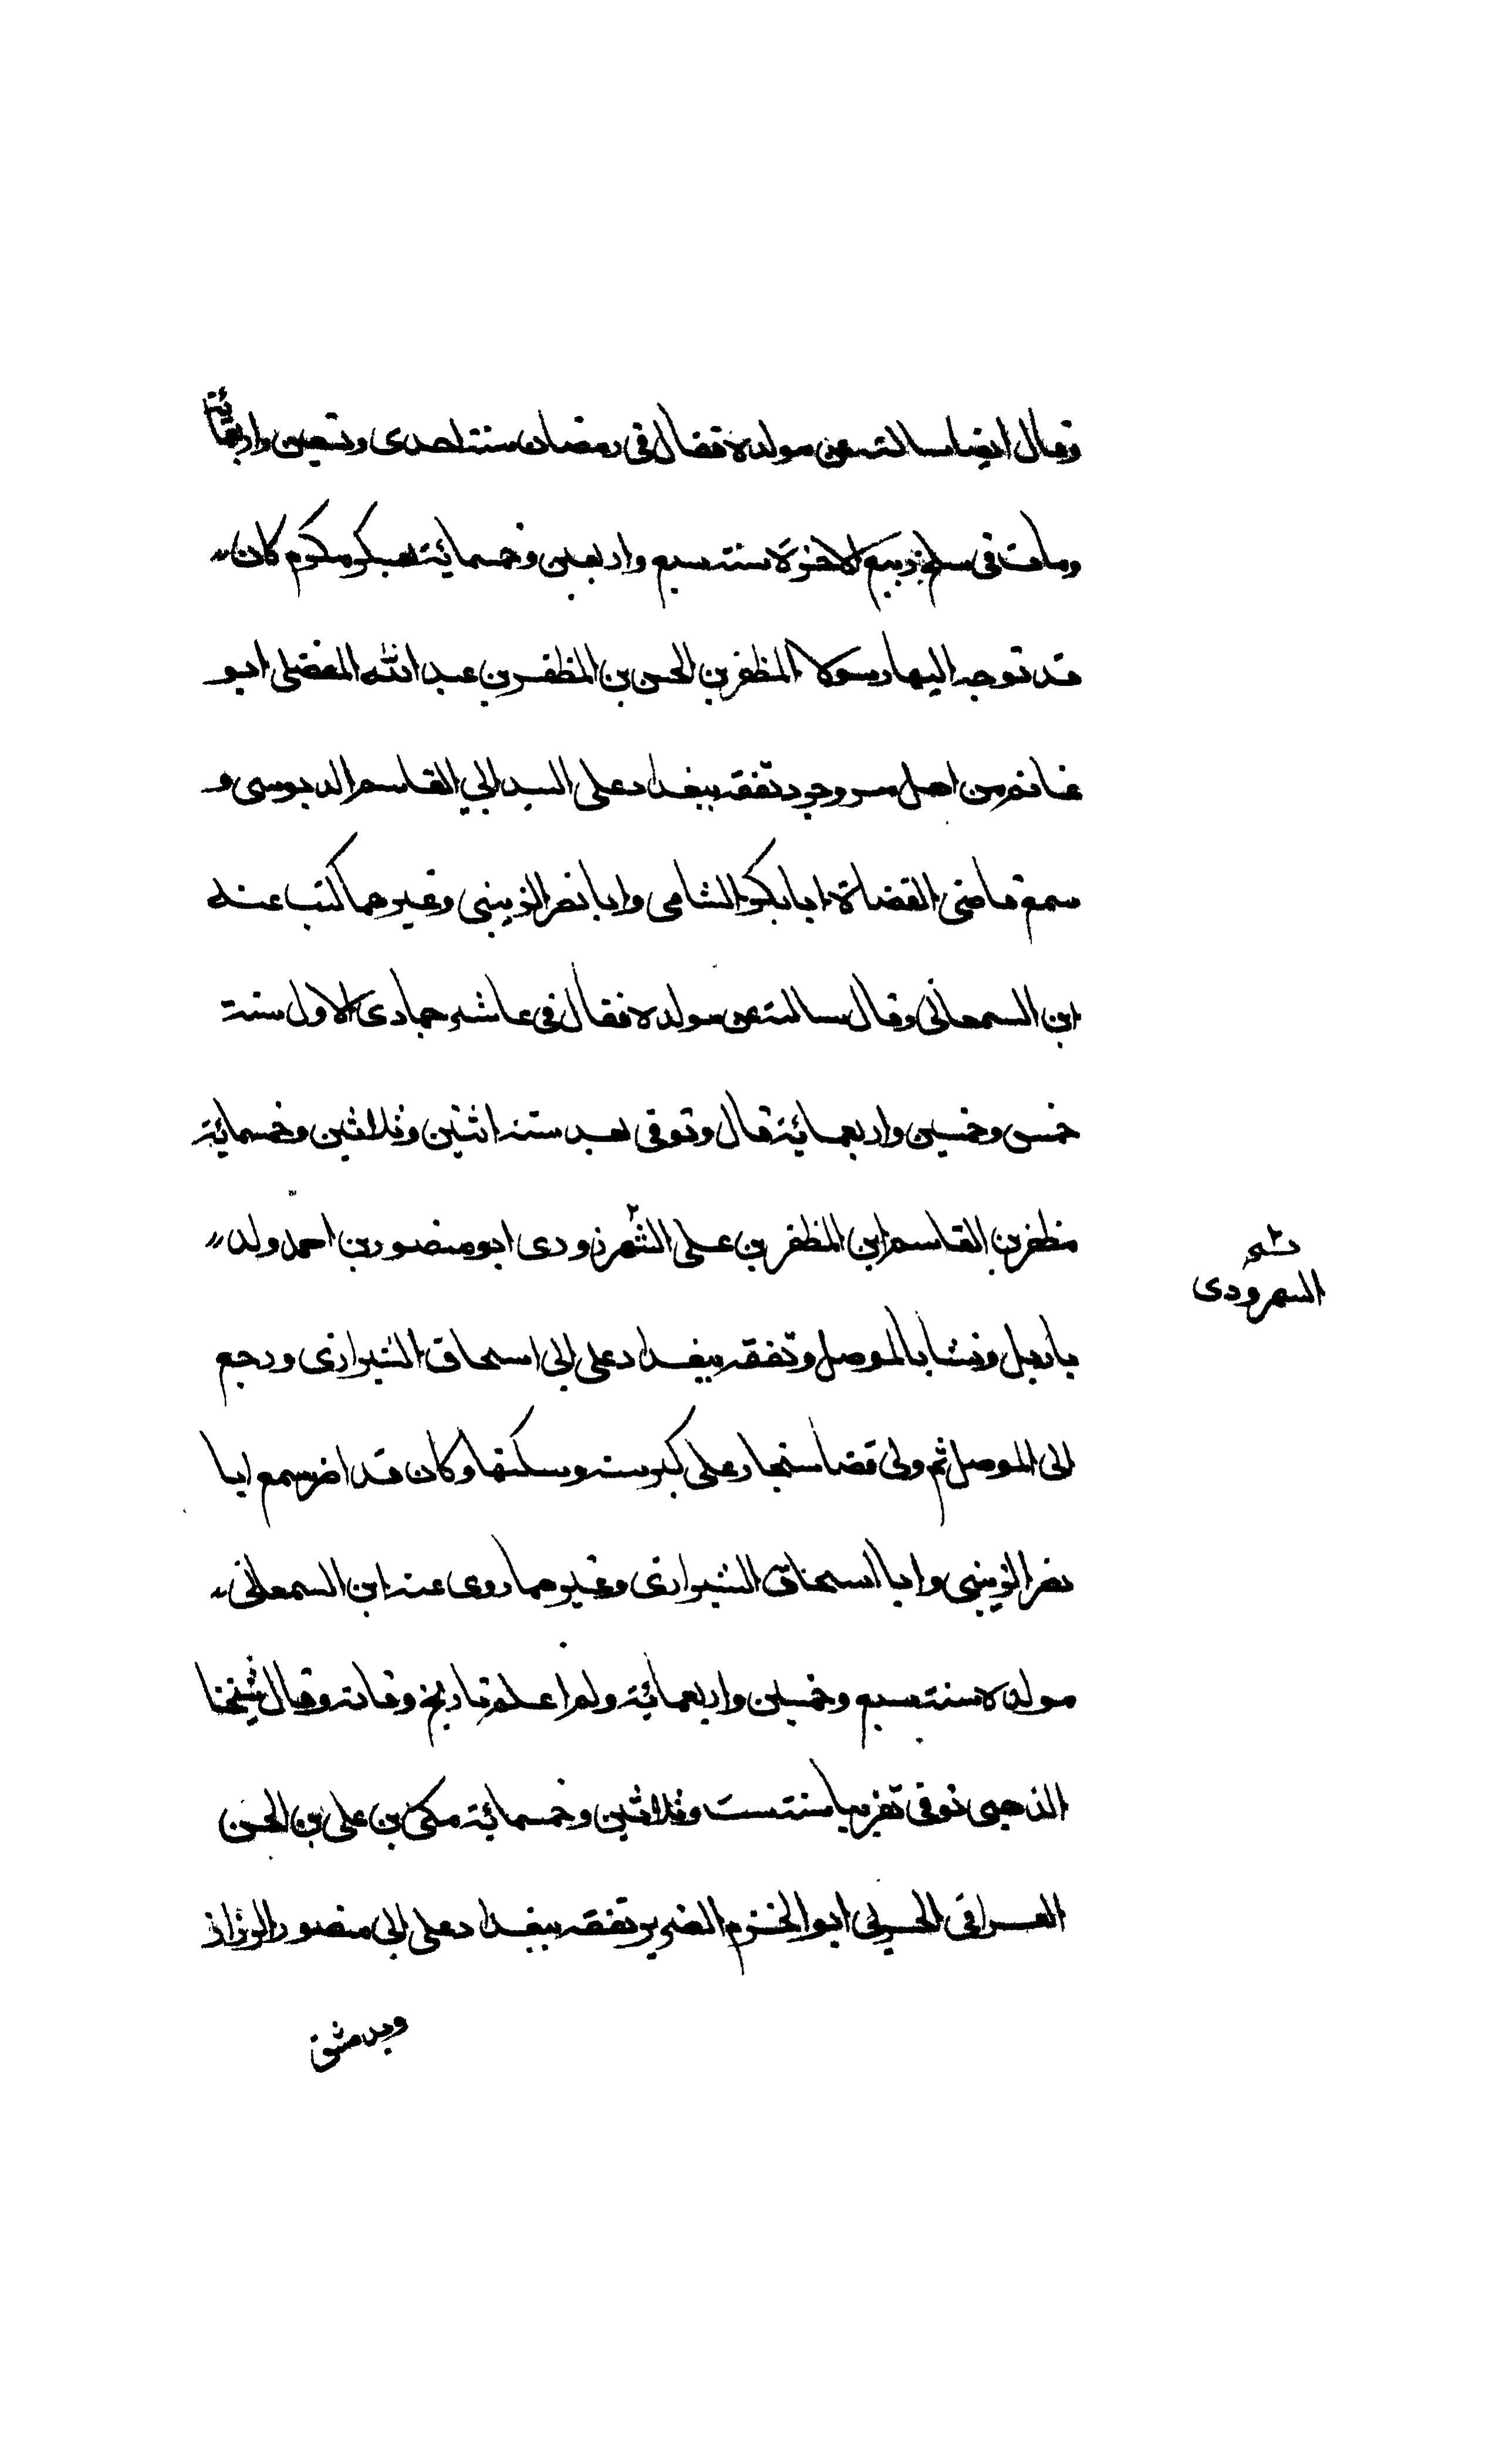 وقال ايضا سالته عن مولده فقال في رمضان سنة احدى وتسعين واربعمائة
ومات في سلخ ربيع الاخرة سنة سبع واربعين وخمسمائة بعسكر مكرم كان
قد توجه اليها رسولا المظفر بن الحسن بن المظفر بن عبد الله المفضلي ابو
غانم من اهل بروجرد تفقه ببغداد على السيد ابي القاسم الدبوسي و
سمع قاضي القضاة ابا بكر الشامي وابا نصر الزينبي وغيرهما كتب عنه
ابن السمعاني وقال سالته عن مولده فقال في عاشر جمادى الاول سنة
خمس وخمسين واربعمائة قال وتوفى بعد سنة اثنين وثلاثين وخمسمائة
مظفر بن القاسم ابن المظفر بن علي الشهرزورى ابو منصور بن احمد ولد
باربل ونشا بالموصل وتفقه ببغداد على ابي اسحاق الشيرازى ورجع
الى الموصل ثم ولى قضا سنجار على كبر سنه وسكنها وكان قد اضر سمع ابا
نصر الزينبي وابا اسحاق الشيرازى وغيرهما روى عنه ابن السمعاني
مولده سنة سبع وخمسين واربعمائة ولم اعلم تاريخ وفاته وقال شيخنا
الذهبي توفى تقريبا سنة ست وثلاثين وخمسمائة مكي بن علي بن الحسن
العراقي الحربي ابو الحزم الضرير تفقه ببغداد على ابي منصور الرزاز
وبدمشق
السهرودى